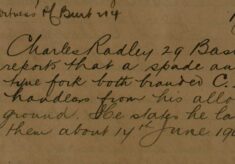 Burt 104
Charles Radley 29 Bas
reports that a spade an
tyne fork both branded C.
handles from his allo
ground. He says he la
them about 14th June 19